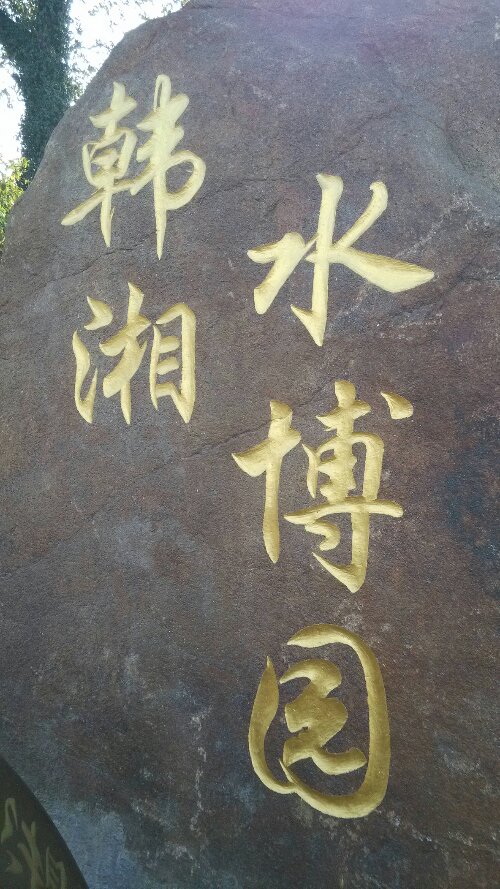 韩湘
水博园